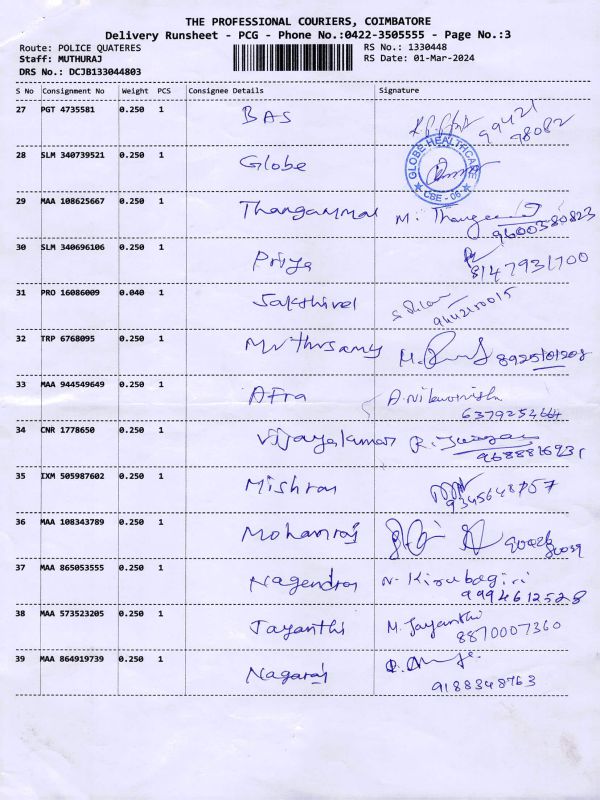 THE PROFESSIONAL COURIERS, COIMBATORE
Delivery Runsheet - PCG - Phone No.:0422-3505555 - Page No.:3
Route: POLICE QUATERES RS No.: 1330448
Staff: MUTHURAJ RS Date: 01-Mar-2024
DRS No.: DCJB133044803
S No Consignment No Weight PCS Consignee Details Signature
27 PGT 4735581 0.250 1 BAS 99421
98082
28 SLM 340739521 0.250 1 Globe GLOBE HEALTHCARE
CBE - 06
29 MAA 108625667 0.250 1 Thangammal M. 
9600380823
30 SLM 340696106 0.250 1 Priya 8147931700
31 PRO 16086009 0.040 1 Sakthivel
9442150015
32 TRP 6768095 0.250 1 Muthusamy M. 8925101208
33 MAA 944549649 0.250 1 Afra A.
6379254664
34 CNR 1778650 0.250 1 Vijayakumar R.
9688816931
35 IXM 505987602 0.250 1 Mishran
9345648757
36 MAA 108343789 0.250 1 Mohanraj
37 MAA 865053555 0.250 1 Nagendran N. Kirubagiri
9994612528
38 MAA 573523205 0.250 1 Jayanthi M. Jayanthi
8870007360
39 MAA 864919739 0.250 1 Nagaraj
9188348763